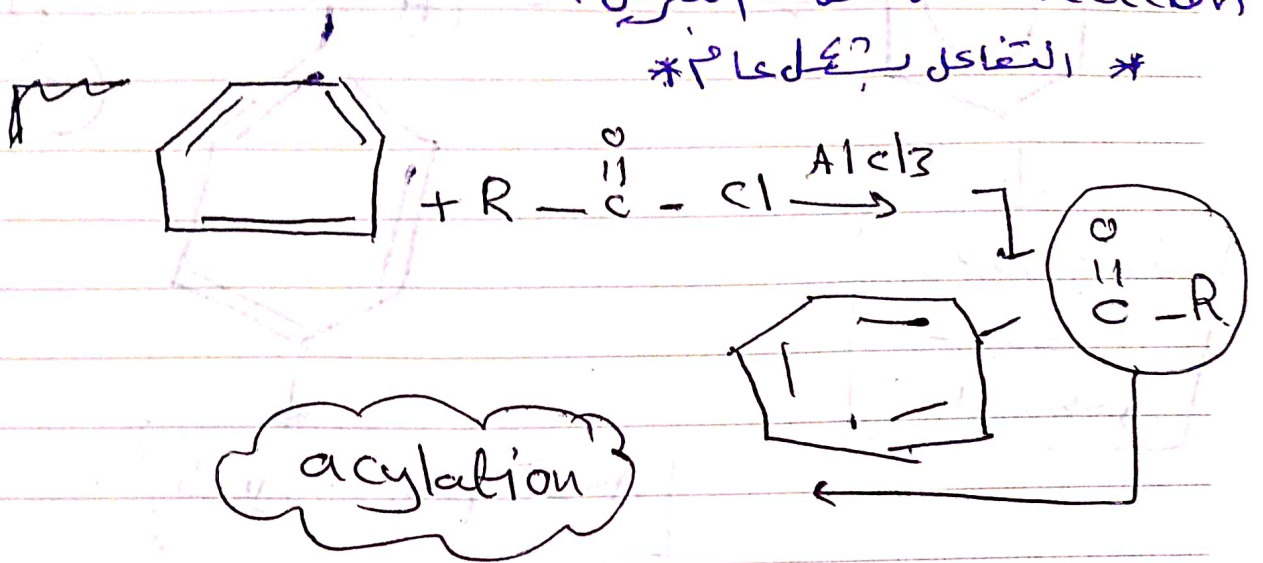 * التفاعل بشكل عام *
+ R — C — Cl AlCl3
O
O
C — R
acylation